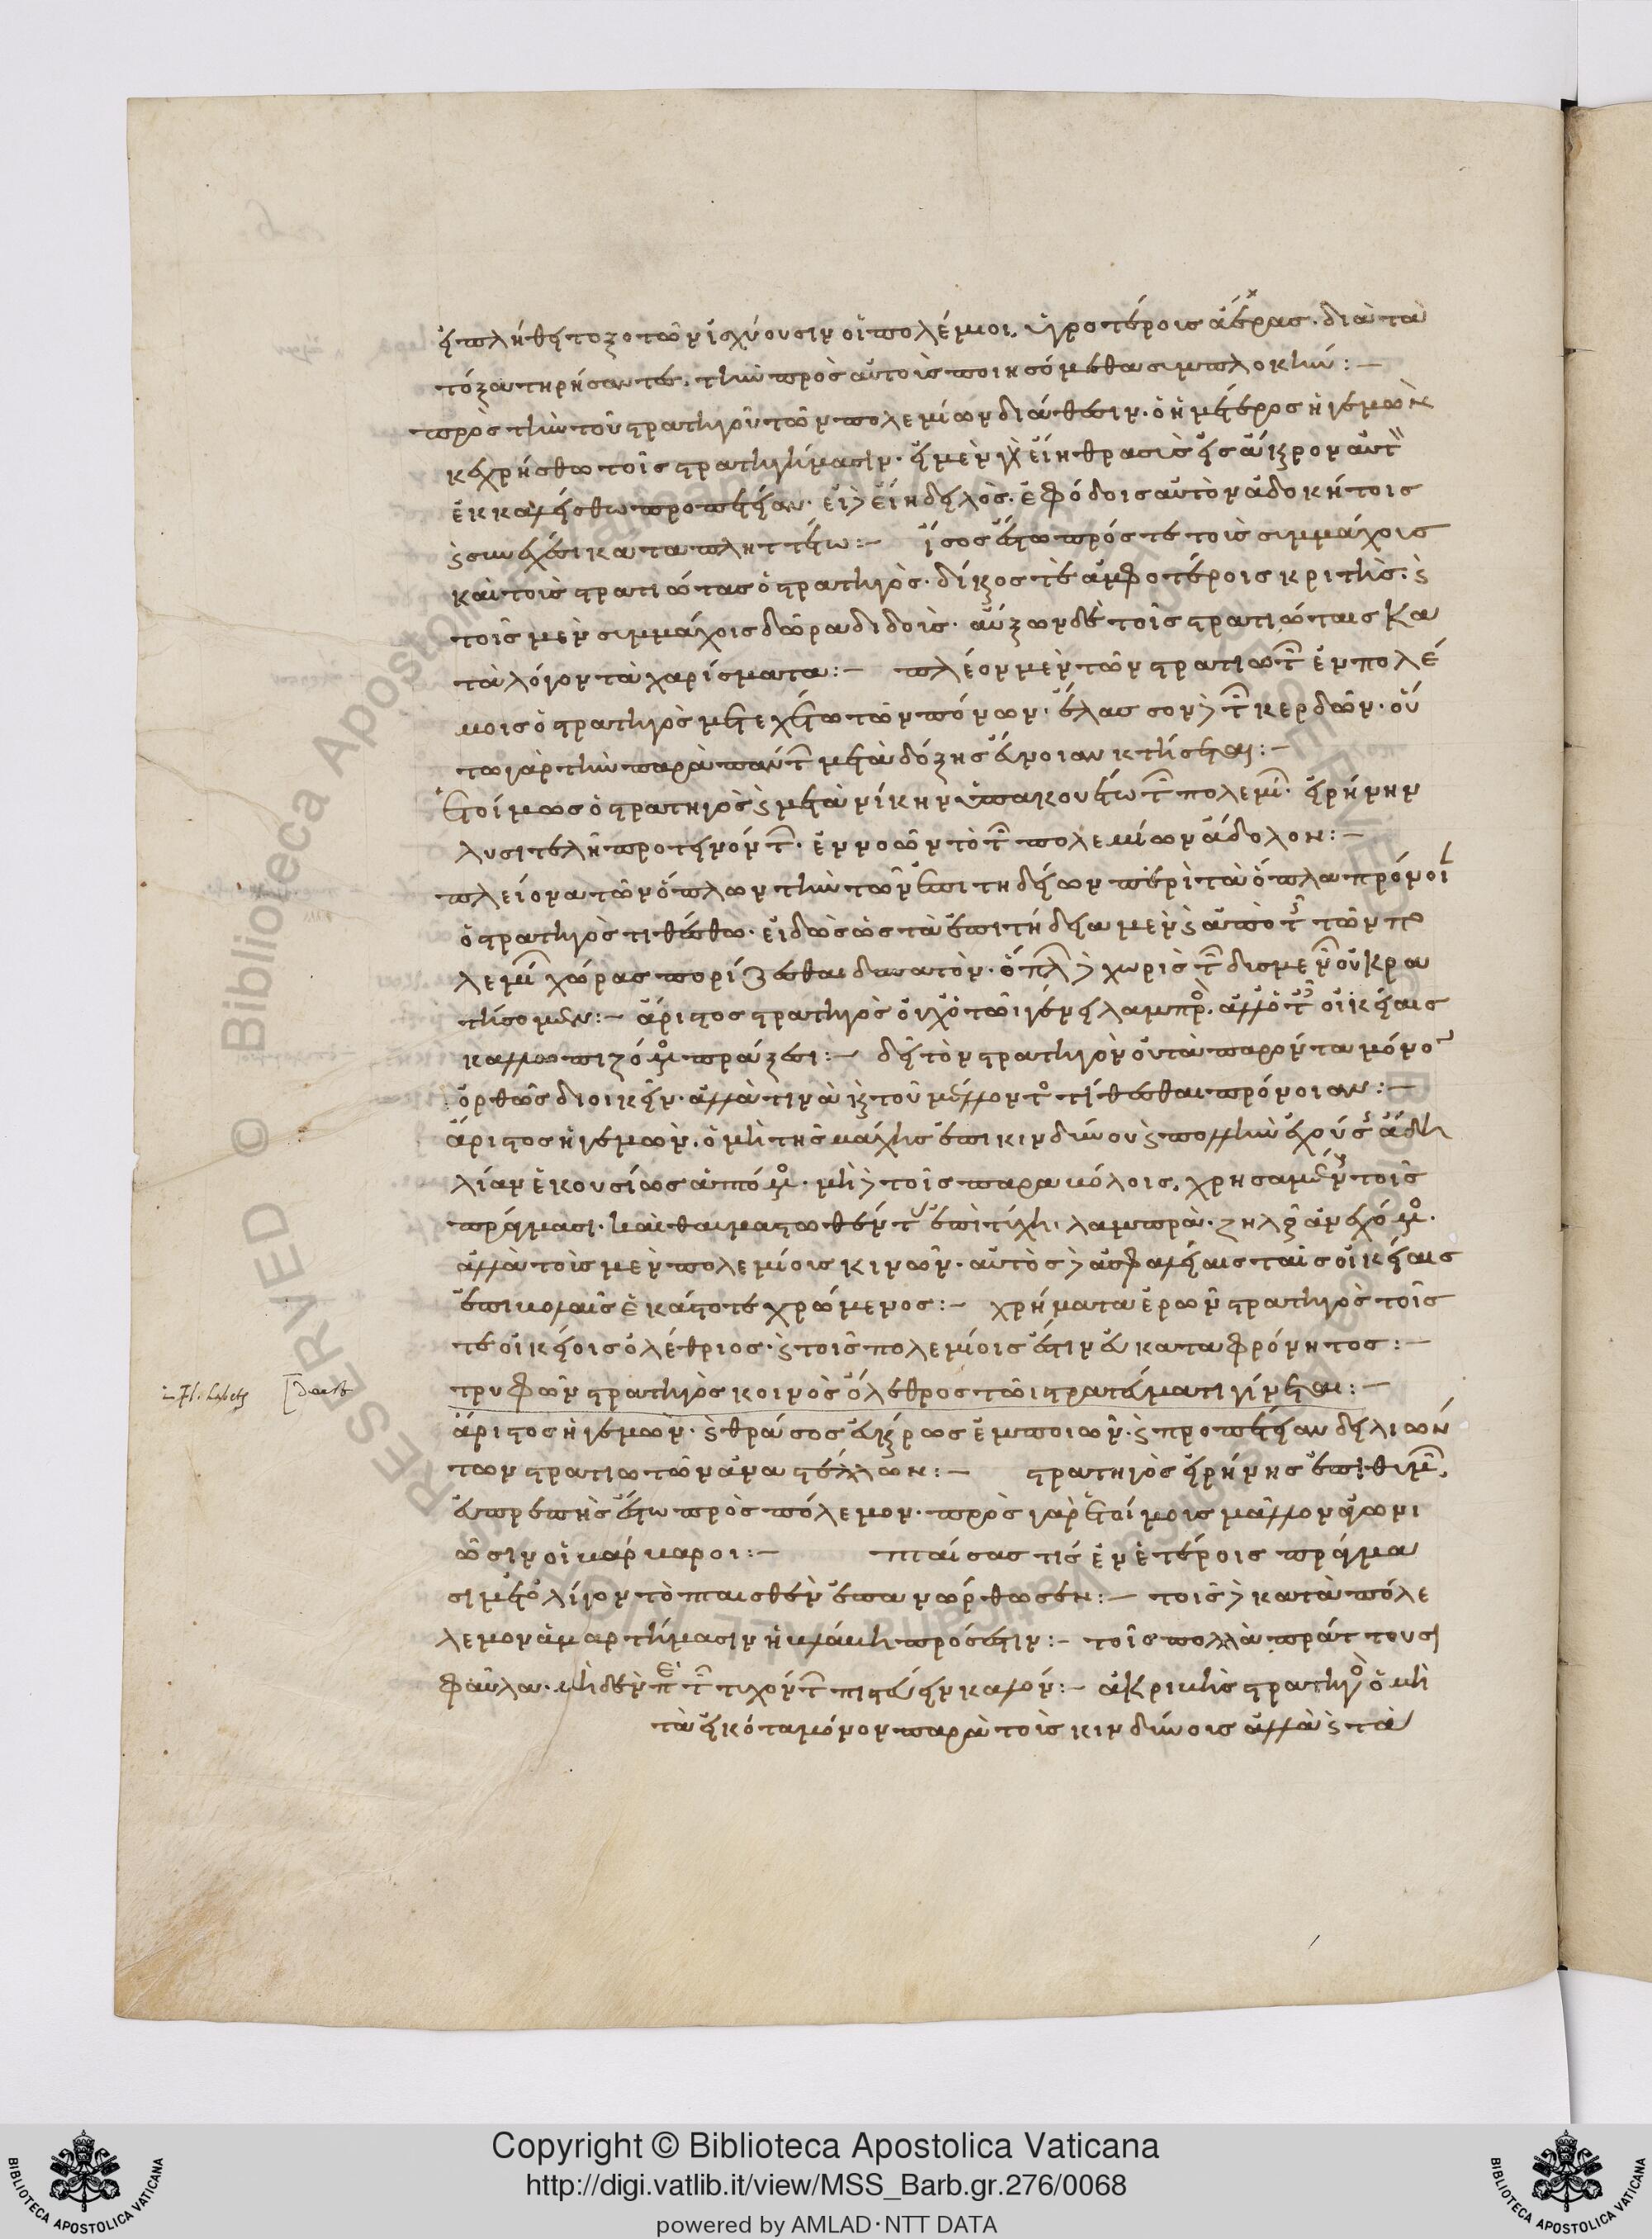 εἰ πλήθει τοξοτῶν ἰσχύουσιν οἱ πολέμιοι, ὑγροτέρους ἀέρας διὰ τὰ
τόξα τηρήσαντες, τὴν πρὸς αὐτοὺς ποιησόμεθα συμπλοκήν:-
πρὸς τὴν τοῦ στρατηγοῦ τῶν πολεμίων διάθεσιν. ὁ ἡμέτερος ἡγεμὼν
κεχρήσθω τοῖς στρατηγήμασιν. εἰ μὲν γὰρ εἴη θρασὺς εἰς ἄκαιρον αὐτὸν
ἐκκαλείσθω προπέτειαν. εἰ δὲ εἴη δειλὸς. ἐφόδοις αὐτὸν ἀδοκήτοις
καὶ συνεχέσι καταπληττέτω:- ἴσος ἔστω πρός τε τοὺς συμμάχους
καὶ τοὺς στρατιώτας ὁ στρατηγὸς. δίκαιός τε ἀμφοτέροις κριτὴς. καὶ
τοῖς μὲν συμμάχοις δῶρα διδοὺς. αὔξων δὲ τοῖς στρατιώταις κα
τὰ λόγον τὰ χαρίσματα:- πλέον μὲν τῶν στρατιωτῶν ἐν πολέ
μοις ὁ στρατηγὸς μετεχέτω τῶν πόνων. ἔλασσον δὲ τῶν κερδῶν. οὕ
τω γὰρ τὴν παρὰ πάντων μετὰ δόξης εὔνοιαν κτήσεται:-
ἑτοίμως ὁ στρατηγὸς καὶ μετὰ νίκην ὑπακουέτω τῶν πολεμίων εἰρήνην
λυσιτελῆ προτεινόντων. ἐννοῶν τὸ τῶν πολεμίων ἄδολον:-
πλείονα τῶν ὅπλων τὴν τῶν ἐπιτηδείων περὶ τὰ ὅπλα πρόνοιαν
ὁ στρατηγὸς τιθέσθω. εἰδὼς ὡς τὰ ἐπιτήδεια μὲν καὶ ἀπὸ τῆς τῶν πο
λεμίων χώρας πορίζεσθαι δυνατὸν. ὅπλων δὲ χωρὶς τῶν δυσμενῶν οὐ κρα
τήσομεν:- ἄριστος στρατηγὸς οὐχ ὁ τῶι γένει λαμπρὸς. ἀλλ' ὁ ταῖς οἰκείαις
καλλωπιζόμενος πράξεσι:- δεῖ τὸν στρατηγὸν οὐ τὰ παρόντα μόνον
ὀρθῶς διοικεῖν. ἀλλὰ τινὰ καὶ τοῦ μέλλοντος τίθεσθαι πρόνοιαν:-
ἄριστος ἡγεμὼν, ὁ μὴ τῆς μάχης ἐπικινδύνου καὶ πολλὴν ἐχούσης ἀδη
λίαν ἑκουσίως ἁπτόμενος. μὴ δὲ τοῖς παραβόλοις, χρησαμένων τοῖς
πράγμασι. καὶ θαυμαστωθέντων ἐπὶ τύχῃ λαμπρᾷ. ζηλῶσαι ἀνεχόμενος.
ἀλλὰ τοὺς μὲν πολεμίους κινῶν. αὐτὸς δὲ ἀσφαλείαις ταῖς οἰκείαις
ἐπιβολαῖς ἑκάστοτε χρώμενος:- χρήματα ἐρῶν στρατηγὸς τοῖς
τε οἰκείοις ὀλέθριος. καὶ τοῖς πολεμίοις ἐστὶν εὐκαταφρόνητος:-
τρυφῶν στρατηγὸς κοινὸς ὄλεθρος τῶι στρατεύματι γίνεται:-
ἄριστος ἡγεμὼν. καὶ θράσος εὐκαίρως ἐμποιῶν. καὶ προπέτειαν δειλιῶν
των στρατιωτῶν ἀναστέλλων:- στρατηγὸς εἰρήνης ἐπιθυμῶν,
εὐπρεπὴς ἔστω πρὸς πόλεμον. πρὸς γὰρ ἑτοίμους μᾶλλον ἀγωνι
ῶσιν οἱ βάρβαροι:- πταίσας τίς ἐν ἑτέροις πράγμα
σι μετ' ὀλίγον τὸ πταισθὲν ἐπανώρθωσεν:- τοῖς δὲ κατὰ πόλε
λεμον ἁμαρτήμασιν ἡ βλάβη πρόσεστιν:- τοῖς πολλὰ πράττουσι
φαῦλα. μηδὲν περὶ τῶν τυχόντων πιστεύειν καλόν:- ἀκριβὴς στρατηγὸς ὁ μὴ
τὰ εἰκότα μόνον παρὰ τοὺς κινδύνους ἀλλὰ καὶ τὰ
Copyright © Biblioteca Apostolica Vaticana
http://digi.vatlib.it/view/MSS_Barb.gr.276/0068
powered by AMLAD·NTT DATA